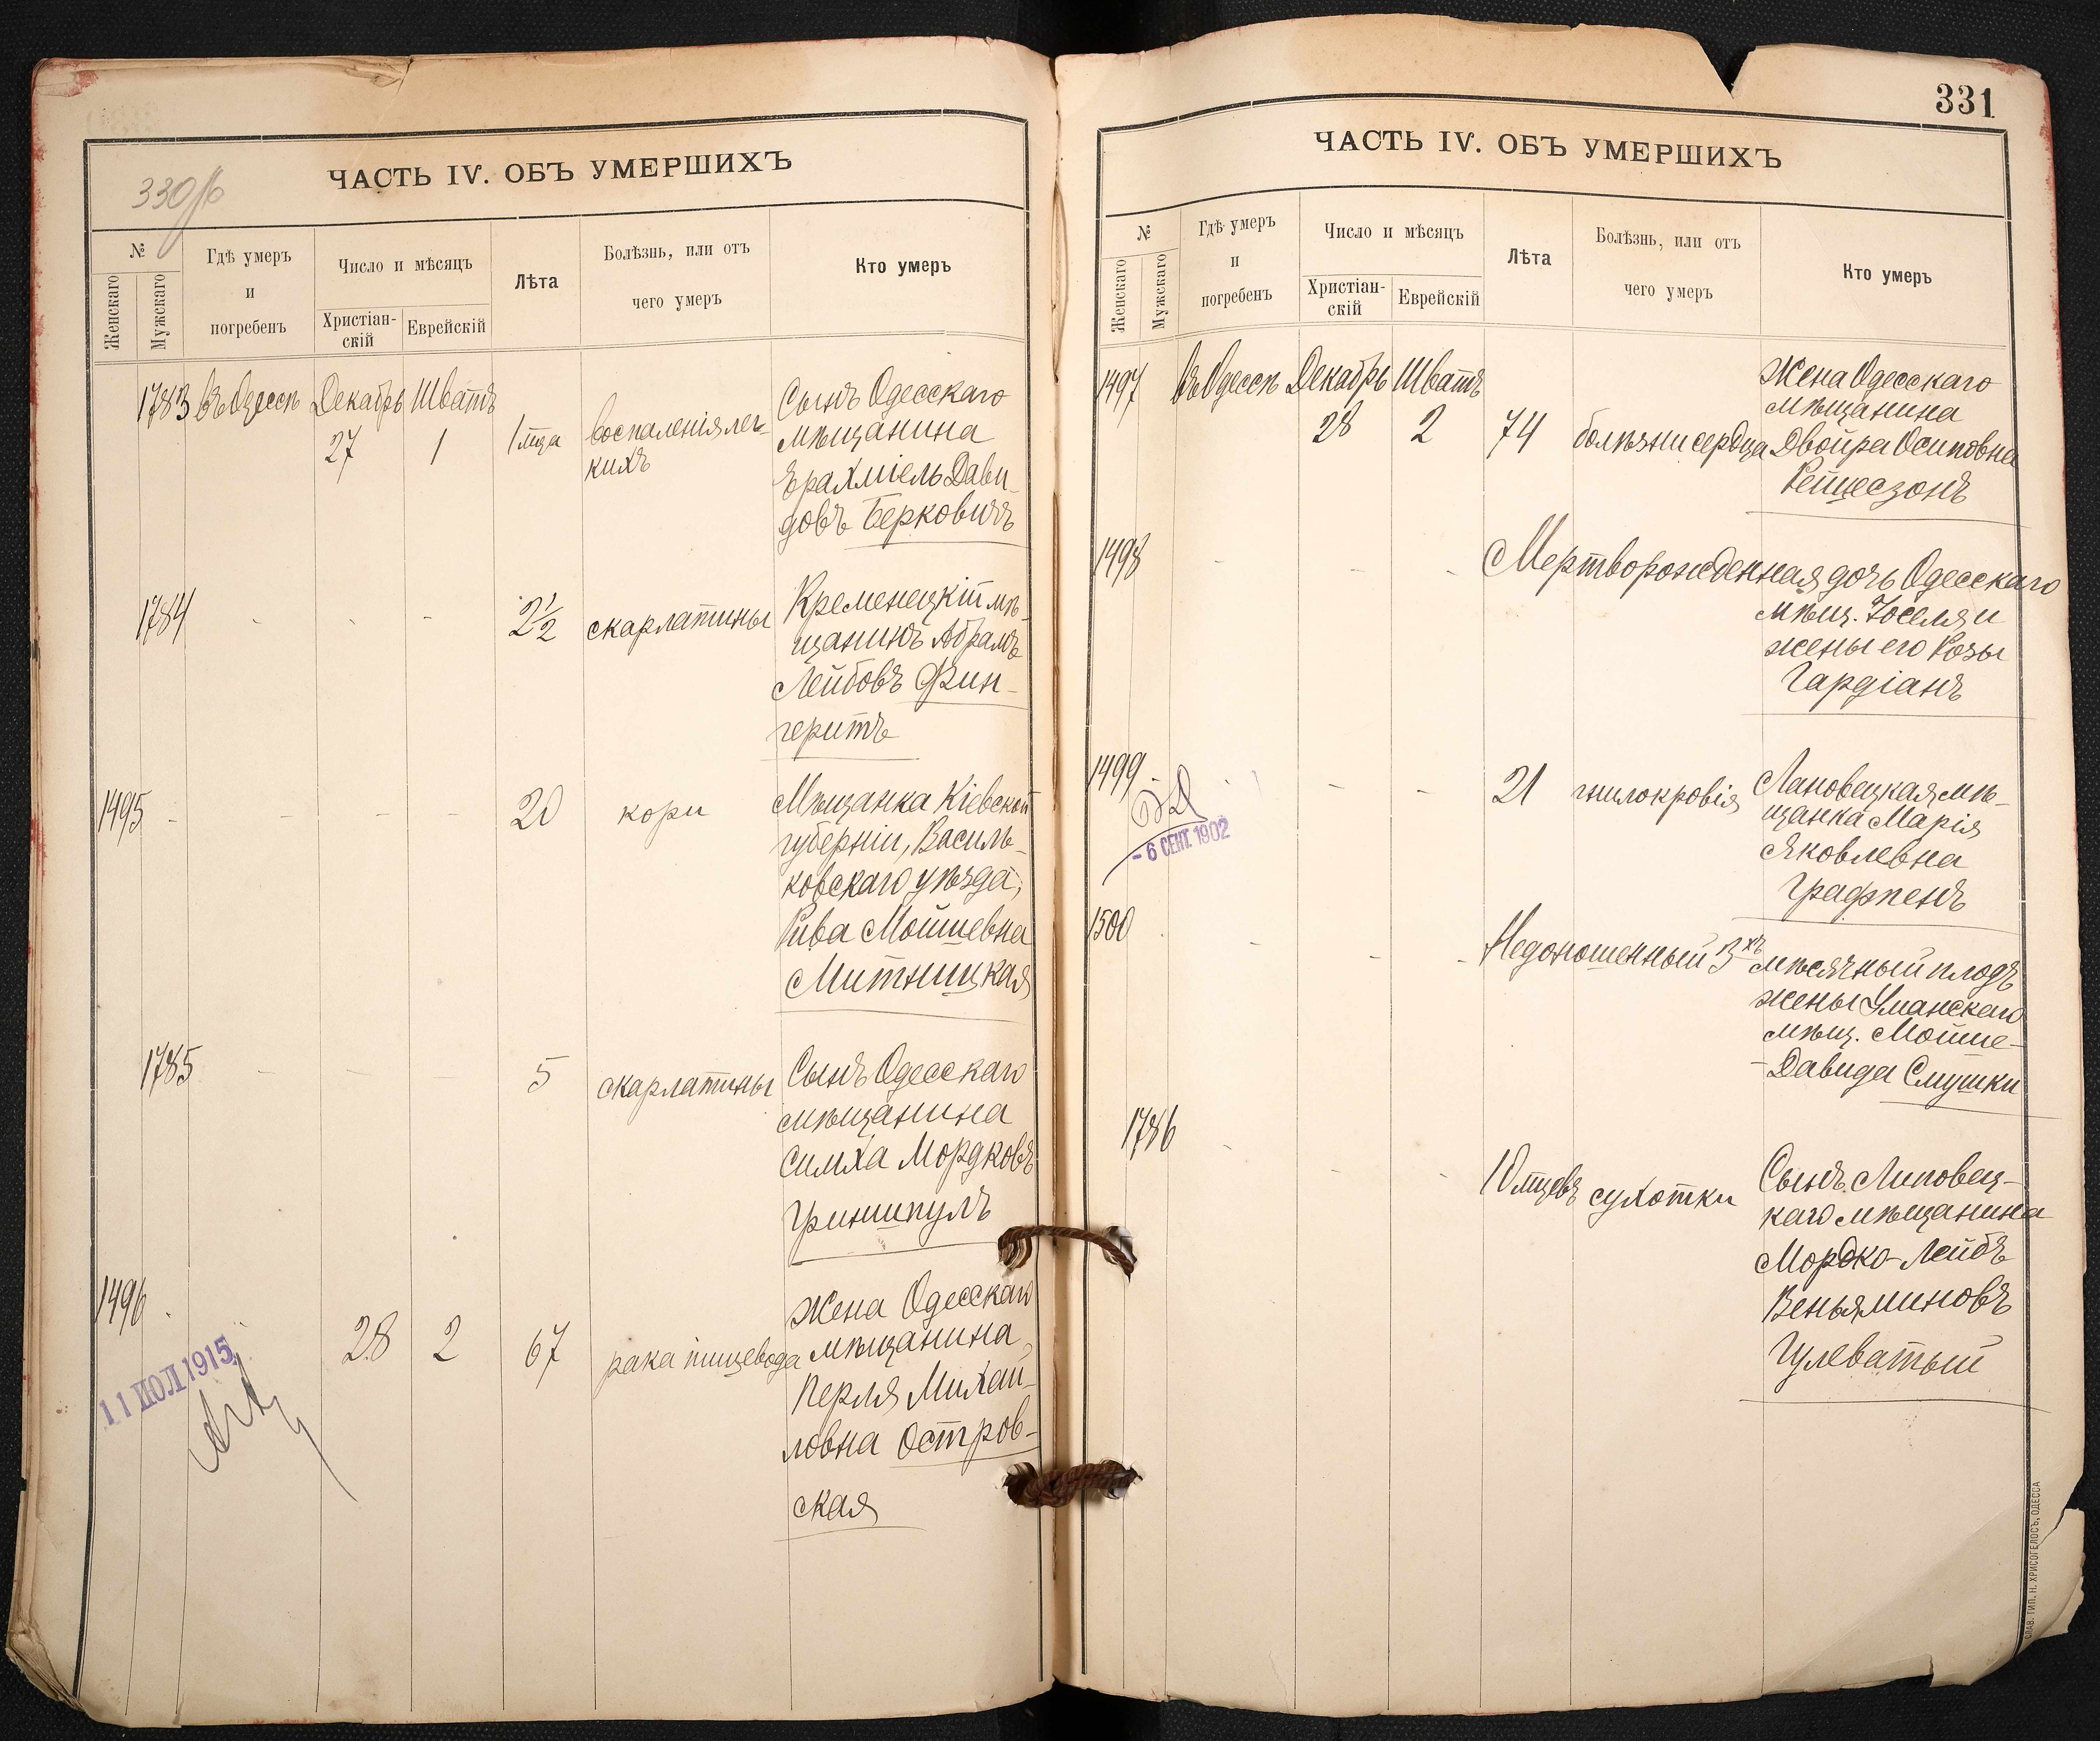 330об
ЧАСТЬ IV. ОБЪ УМЕРШИХЪ
№
Женскаго
Мужскаго
Гдѣ умеръ
и
погребенъ
Число и мѣсяцъ
Христіан-
скій
Еврейскій
Лѣта
Болѣзнь, или отъ
чего умеръ
Кто умеръ
1783 Въ Одессѣ Декабрь Шватъ
27 1 1 мца воспаленія лег-
кихъ
Сынъ Одесскаго
мѣщанина
Ерахміель Дави-
довъ Берковичъ
1784 - - - 2½ скарлатины
Кременецкій мѣ-
щанинъ Абрамъ
Лейбовъ Фин-
геритъ
1495 - - - - 20 кори
Мѣщанка Кіевской
губерніи, Василь-
ковскаго уѣзда,
Рива Мойшевна
Митницкая
1785 - - - 5 скарлатины
Сынъ Одесскаго
мѣщанина
Симха Мордковъ
Гриншпулъ
1496
28 2 67 рака пищевода
Жена Одесскаго
мѣщанина,
Перля Михай-
ловна Остров-
ская
11 ИЮЛ 1915
331
ЧАСТЬ IV. ОБЪ УМЕРШИХЪ
№
Женскаго
Мужскаго
Гдѣ умеръ
и
погребенъ
Число и мѣсяцъ
Христіан-
скій
Еврейскій
Лѣта
Болѣзнь, или отъ
чего умеръ
Кто умеръ
1497 Въ Одессѣ Декабрь Шватъ
28 2 74 болѣзни сердца
Жена Одесскаго
мѣщанина
Двойра Осиповна
Рейцесзонъ
1498 - - - Мертворожденная дочь Одесскаго
мѣщ. Іоселя и
жены его Розы
Гардіанъ
1499 - - - 21 гнилокровія
Лановецкая мѣ-
щанка Марія
Яковлевна
Графпенъ
- 6 СЕНТ. 1902
1500 - - - Недоношенный 3хъ мѣсячный плодъ
жены Уманскаго
мѣщ. Мойше-
-Давида Слушки
1786 - - - 10 мцевъ сухотки
Сынъ Липовец-
каго мѣщанина
Мордко-Лейбъ
Веньяминовъ
Гулеватый
СЛАВ. ТИП. Н. ХРИСОГЕЛОСЪ, ОДЕССА